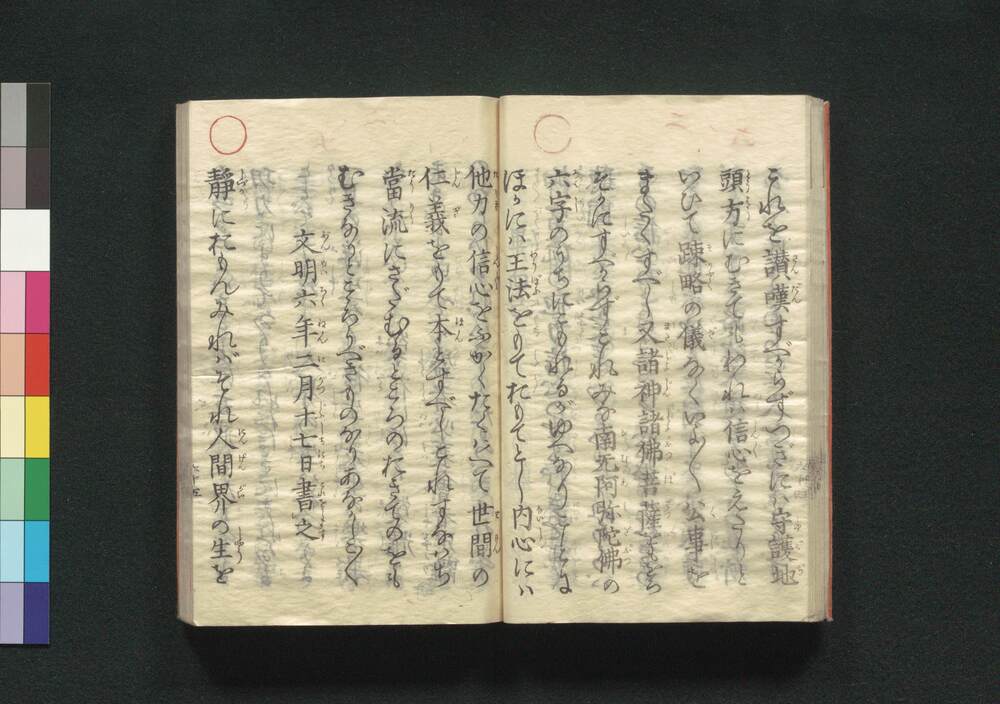 これを讃嘆すべからずつぎには守護地
頭方にむきても我れは信心をえたりと
いひて疎略の儀なくいよ〱公事を
またくすべし又諸神諸佛菩薩をもを
ろかにすべからずこれみな南无阿弥陀佛の
六字のうちにこもれるがゆへなりことに
ほかには王法をもておもてとし内心には
他力の信心をふかくたくはへて世間の
仁義をもて本とすべしこれすなはち
當流にさだむるところのおきてのをも
むきなりとこゝろうべきものなりあなかしこ〱
文明六年二月十七日書之
靜におもんみればそれ人間界の生を